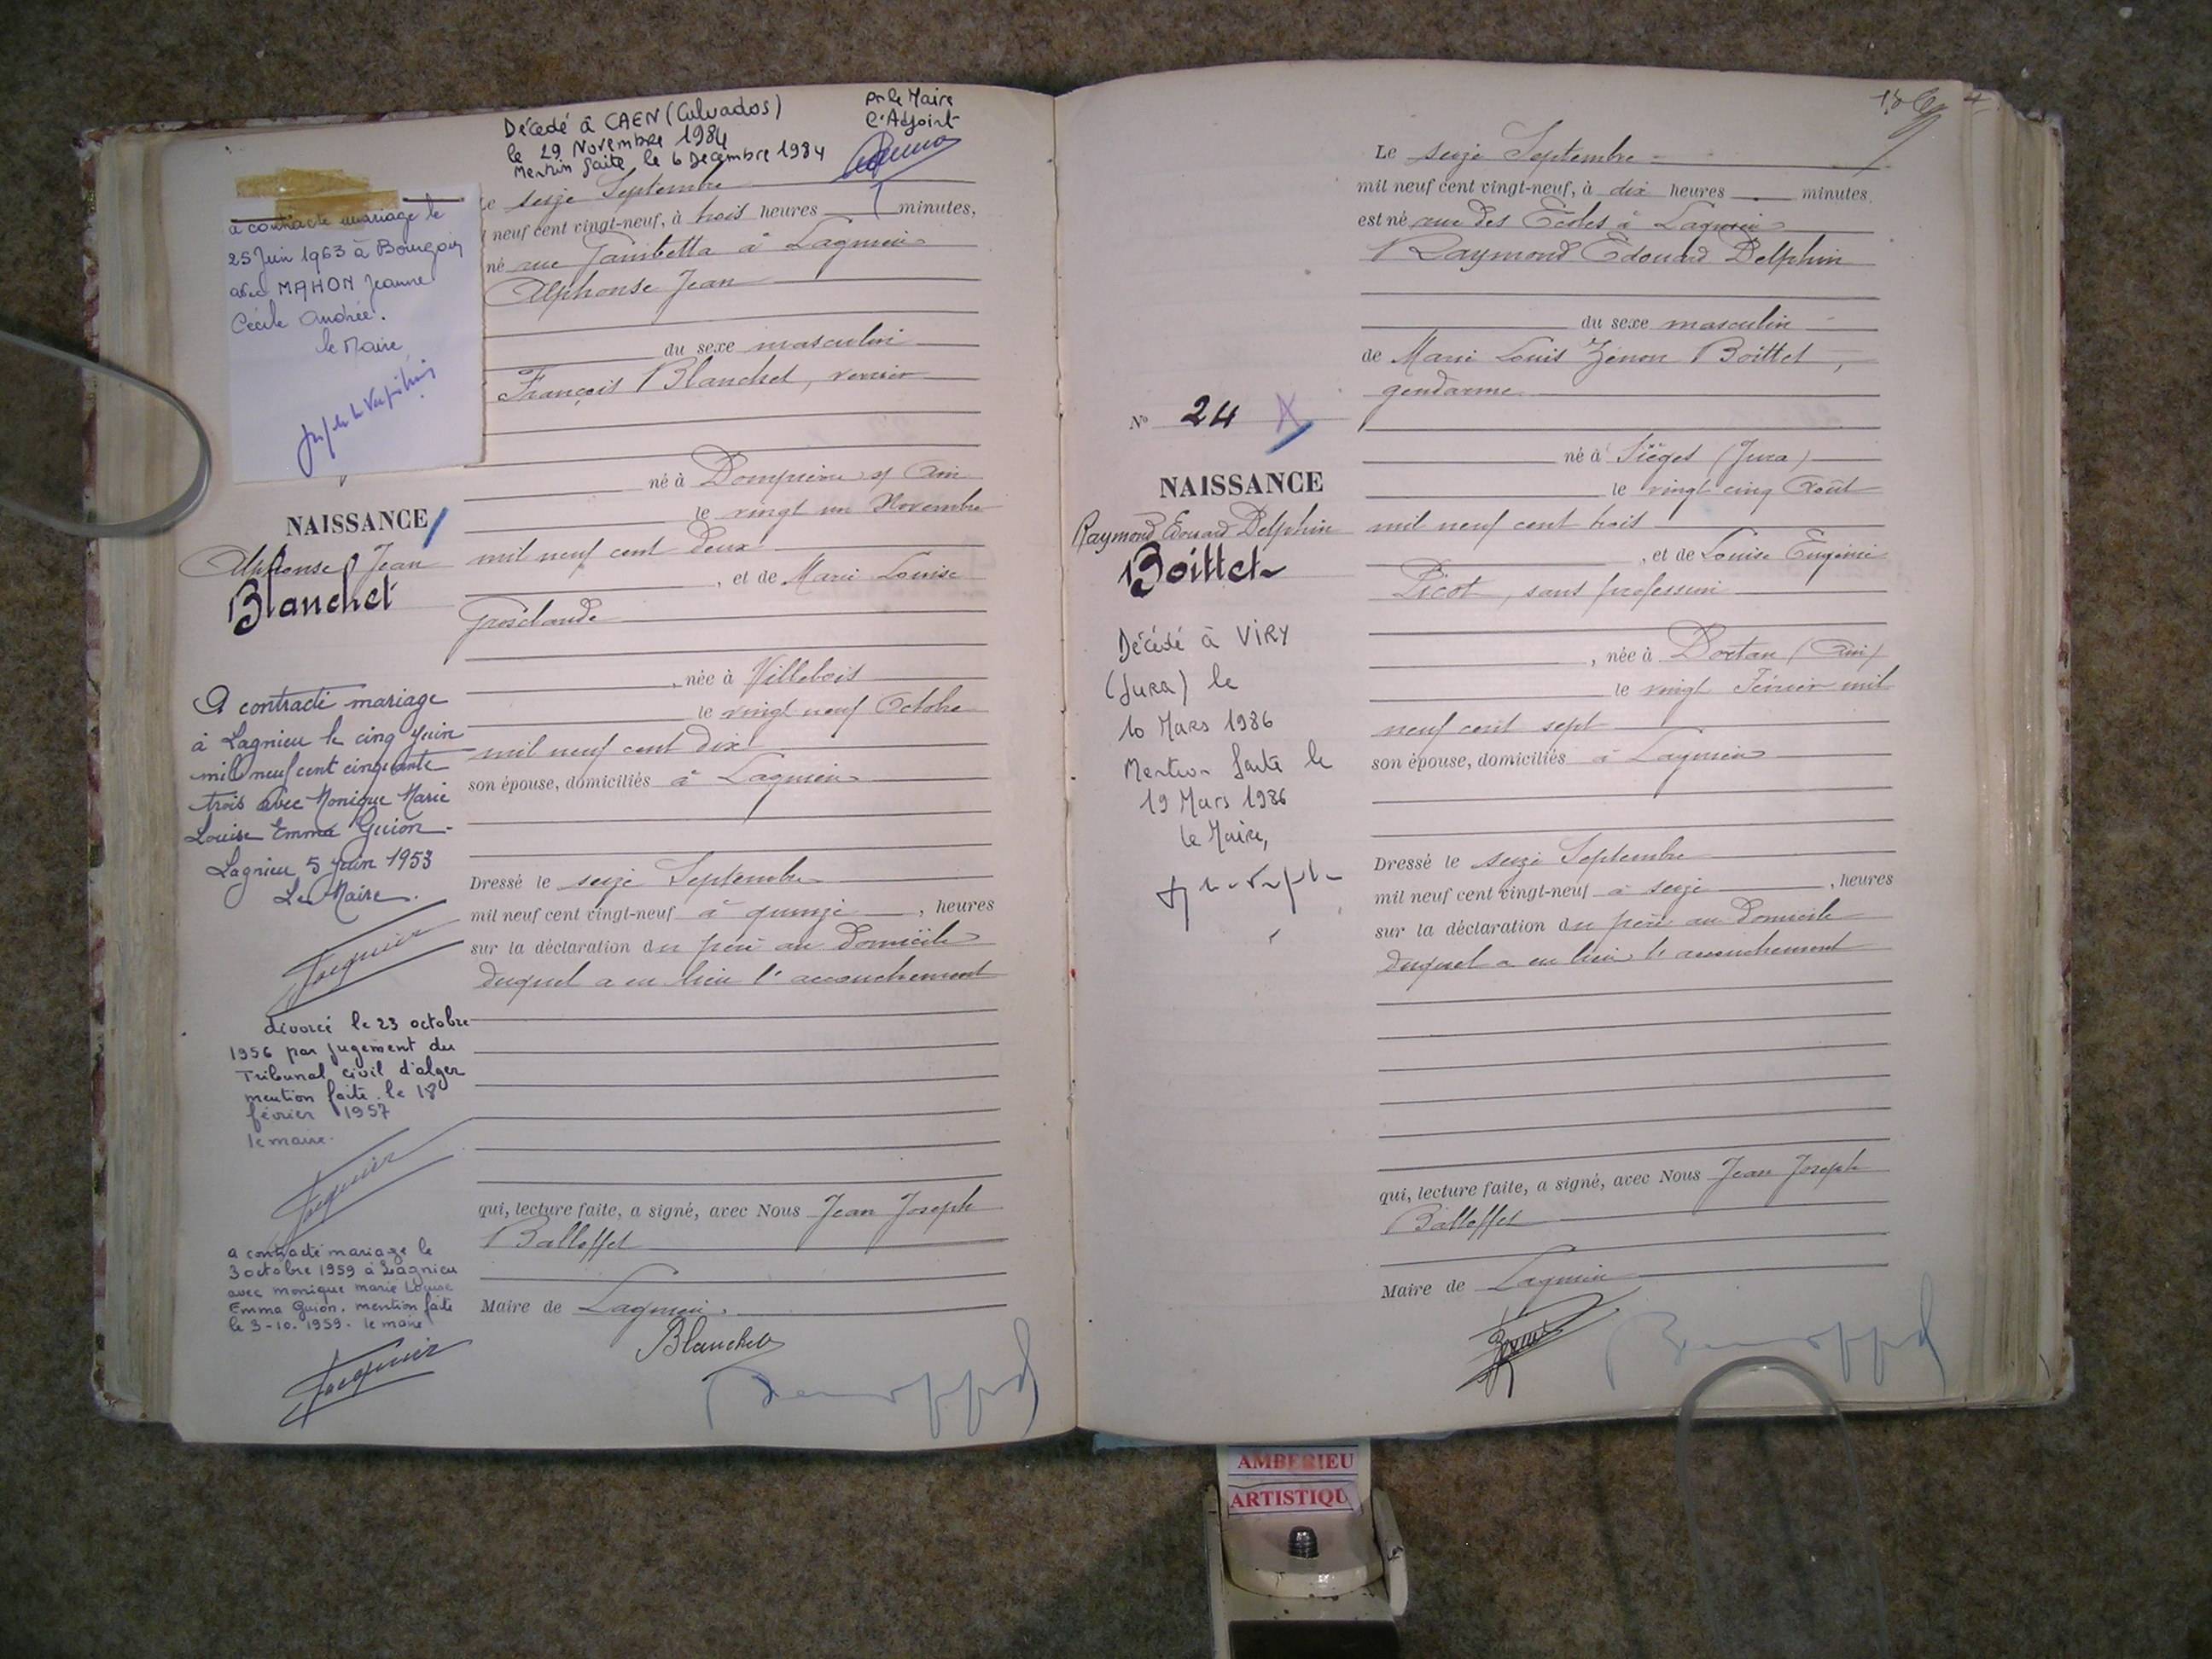 Décédé à CAEN (Calvados)
le 29 Novembre 1984
Mention faite le 6 Décembre 1984
Pr le Maire
l'Adjoint
a contracté mariage le
25 Juin 1963 à Bourgoin
avec MAHON Jeanne
Cécile Andrée.
le Maire
NAISSANCE
Alphonse Jean
Blanchet
A contracté mariage
à Lagnieu le cinq juin
mil neuf cent cinquante
trois avec Monique Marie
Louise Emma Guion.
Lagnieu 5 juin 1953
Le Maire.
Jacquier
divorcé le 23 octobre
1956 par jugement du
Tribunal civil d'alger
mention faite le 18
février 1957
le maire.
Jacquier
a contracté mariage le
3 octobre 1959 à Lagnieu
avec monique marie Louise
Emma Guion. mention faite
le 3-10.1959. le maire
Jacquier
Le seize Septembre
neuf cent vingt-neuf, à trois heures minutes,
né rue Gambetta à Lagnieu
Alphonse Jean
du sexe masculin
François Blanchet, verrier
né à Dompierre s/ Ain
le vingt un Novembre
mil neuf cent deux
, et de Marie Louise
Grosclaude
, née à Villebois
le vingt neuf Octobre
mil neuf cent dix
son épouse, domiciliés à Lagnieu
Dressé le seize Septembre
mil neuf cent vingt-neuf à quinze , heures
sur la déclaration du père au domicile
duquel a eu lieu l'accouchement
qui, lecture faite, a signé, avec Nous Jean Joseph
Balloffet
Maire de Lagnieu.
Blanchet
Le seize Septembre
mil neuf cent vingt-neuf, à dix heures minutes,
est né rue des Ecoles à Lagnieu
Raymond Edouard Delphin
du sexe masculin
de Marie Louis Zénon Boittet,
gendarme
né à Siéges (Jura)
le vingt cinq Août
mil neuf cent trois
, et de Louise Eugénie
Picot, sans profession
, née à Dortan (Ain)
le vingt Février mil
neuf cent sept
son épouse, domiciliés à Lagnieu
Dressé le seize Septembre
mil neuf cent vingt-neuf à seize , heures
sur la déclaration du père au domicile
duquel a eu lieu l'accouchement
qui, lecture faite, a signé, avec Nous Jean Joseph
Balloffet
Maire de Lagnieu
No 24
NAISSANCE
Raymond Edouard Delphin
Boittet
Décédé à VIRY
(Jura) le
10 Mars 1986
Mention faite le
19 Mars 1986
le Maire,
AMBERIEU
ARTISTIQU